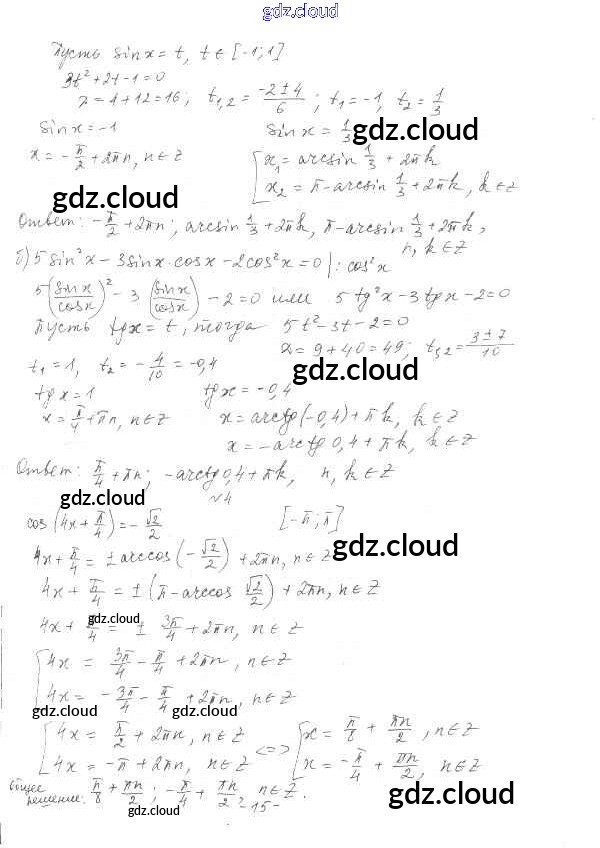 gdz.cloud
Пусть sinx = t, t ∈ [-1;1]
3t² + 2t - 1 = 0
D = 4 + 12 = 16; t₁,₂ = (-2 ± 4)/6; t₁ = -1, t₂ = 1/3
sinx = -1 sinx = 1/3 gdz.cloud
x = -π/2 + 2πn, n ∈ Z [ x₁ = arcsin 1/3 + 2πk
gdz.cloud x₂ = π - arcsin 1/3 + 2πk, k ∈ Z
Ответ: -π/2 + 2πn; arcsin 1/3 + 2πk, π - arcsin 1/3 + 2πk,
n, k ∈ Z
б) 5sin²x - 3sinx·cosx - 2cos²x = 0 | : cos²x
5(sinx/cosx)² - 3(sinx/cosx) - 2 = 0 или 5tg²x - 3tgx - 2 = 0
Пусть tgx = t, тогда 5t² - 3t - 2 = 0
D = 9 + 40 = 49; t₁,₂ = (3 ± 7)/10
t₁ = 1, t₂ = -4/10 = -0,4 gdz.cloud
tgx = 1 tgx = -0,4
x = π/4 + πn, n ∈ Z x = arctg(-0,4) + πk, k ∈ Z
x = -arctg 0,4 + πk, k ∈ Z
Ответ: π/4 + πn; -arctg 0,4 + πk, n, k ∈ Z
gdz.cloud √4
cos(4x + π/4) = -√2/2 [-π; π]
4x + π/4 = ± arccos(-√2/2) + 2πn, n ∈ Z gdz.cloud
4x + π/4 = ± (π - arccos √2/2) + 2πn, n ∈ Z
gdz.cloud
4x + π/4 = ± 3π/4 + 2πn, n ∈ Z
[ 4x = 3π/4 - π/4 + 2πn, n ∈ Z
4x = -3π/4 - π/4 + 2πn, n ∈ Z
gdz.cloud gdz.cloud
[ 4x = π/2 + 2πn, n ∈ Z <=> [ x = π/8 + πn/2, n ∈ Z
4x = -π + 2πn, n ∈ Z x = -π/4 + πn/2, n ∈ Z
Общее решение: π/8 + πn/2; -π/4 + πn/2, n ∈ Z. gdz.cloud
-15-
gdz.cloud